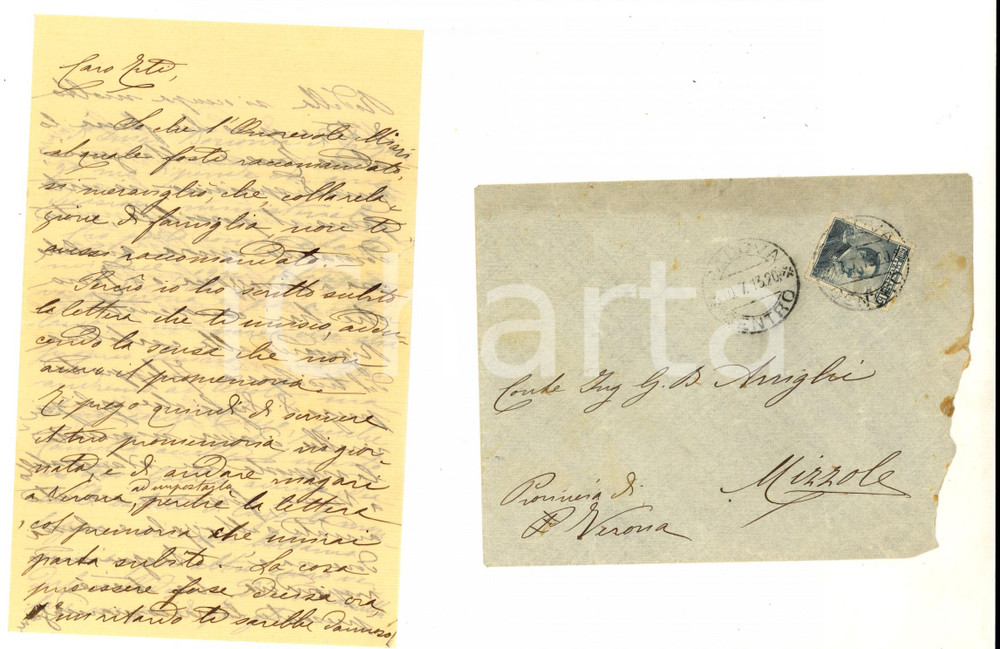 Caro Erti,
So che l'Onorevole Miari
al quale foste raccomandato,
si meravigliò, che, colla rela-
zione di famiglia, non ti
avessi raccomandato.-
Perciò io ho scritto subito
la lettera che ti unisco, addu-
cendo la scusa che non
avevo il promemoria.-
Ti prego quindi di scrivere
il tuo promemoria in gior-
nata, e di andare magari
a Verona, ad impostarla perchè la lettera
col premoria che unirai
parta subito. La cosa
può essere forse decisa ora,
e un ritardo ti sarebbe dannoso,
iCharta
PADOVA
7.13.20
CENTRO
Conte Ing G. B. Arrighi
Mizzole
Provincia di
Verona